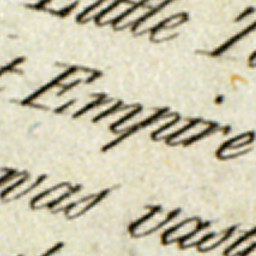 Little
Empire
was vast